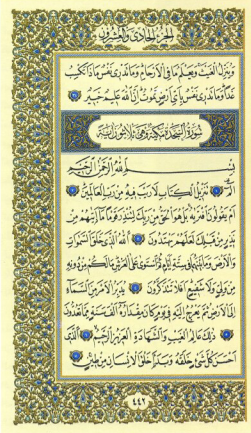 الجزء الحادى والعشرون
وينزل الغيث ويعلم ما في الأرحام وما تدري نفس ماذا تكسب
غدا وما تدري نفس بأي أرض تموت إن الله عليم خبير
سورة السجدة مكية وهي ثلاثون آية
بسم الله الرحمن الرحيم
الم تنزيل الكتاب لا ريب فيه من رب العالمين
أم يقولون افتريه بل هو الحق من ربك لتنذر قوما ما أتيهم من
نذير من قبلك لعلهم يهتدون الله الذي خلق السموات
والأرض وما بينهما في ستة أيام ثم استوى على العرش ما لكم من دونه
من ولي ولا شفيع أفلا تتذكرون يدبر الأمر من السماء
إلى الأرض ثم يعرج إليه في يوم كان مقداره ألف سنة مما تعدون
ذلك عالم الغيب والشهادة العزيز الرحيم الذي
أحسن كل شيء خلقه وبدأ خلق الإنسان من طين
٤٤٢